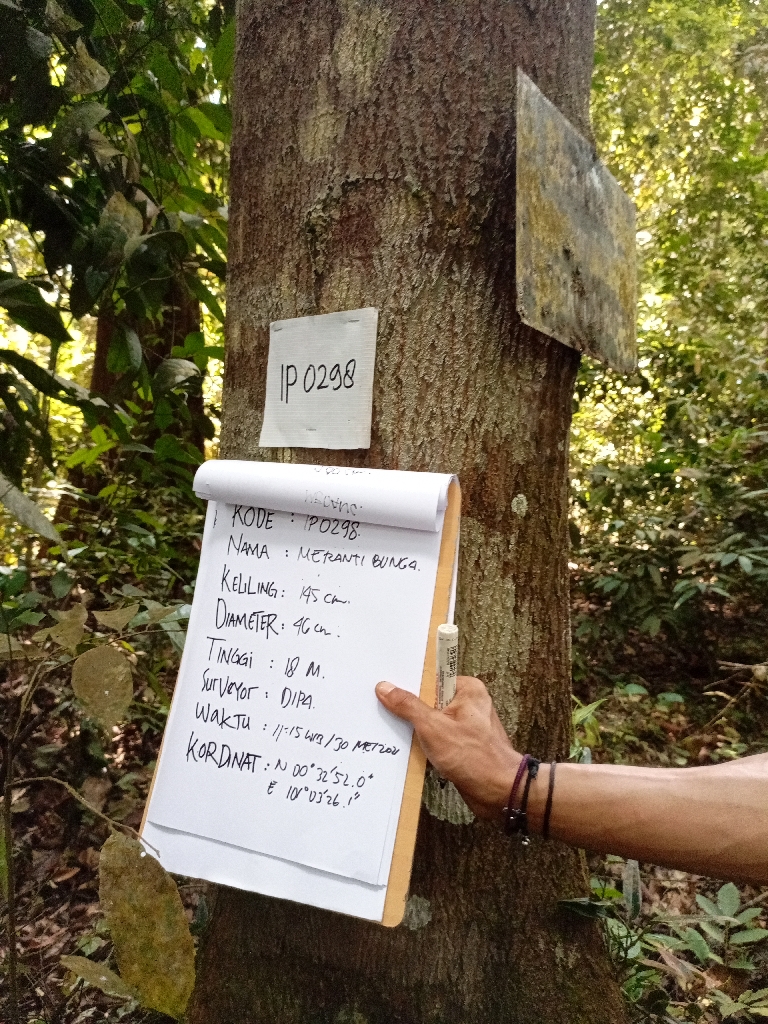 IP0298
KODE : IP0298.
NAMA : MERANTI BUNGA.
KELILING : 145 cm.
DIAMETER : 46 cm.
TINGGI : 18 M.
SURVEYOR : DIPA.
WAKTU : 11-15 WIB / 30 MEI 2021
KORDINAT : N 00° 32' 52.0"
E 101° 03' 26.1"